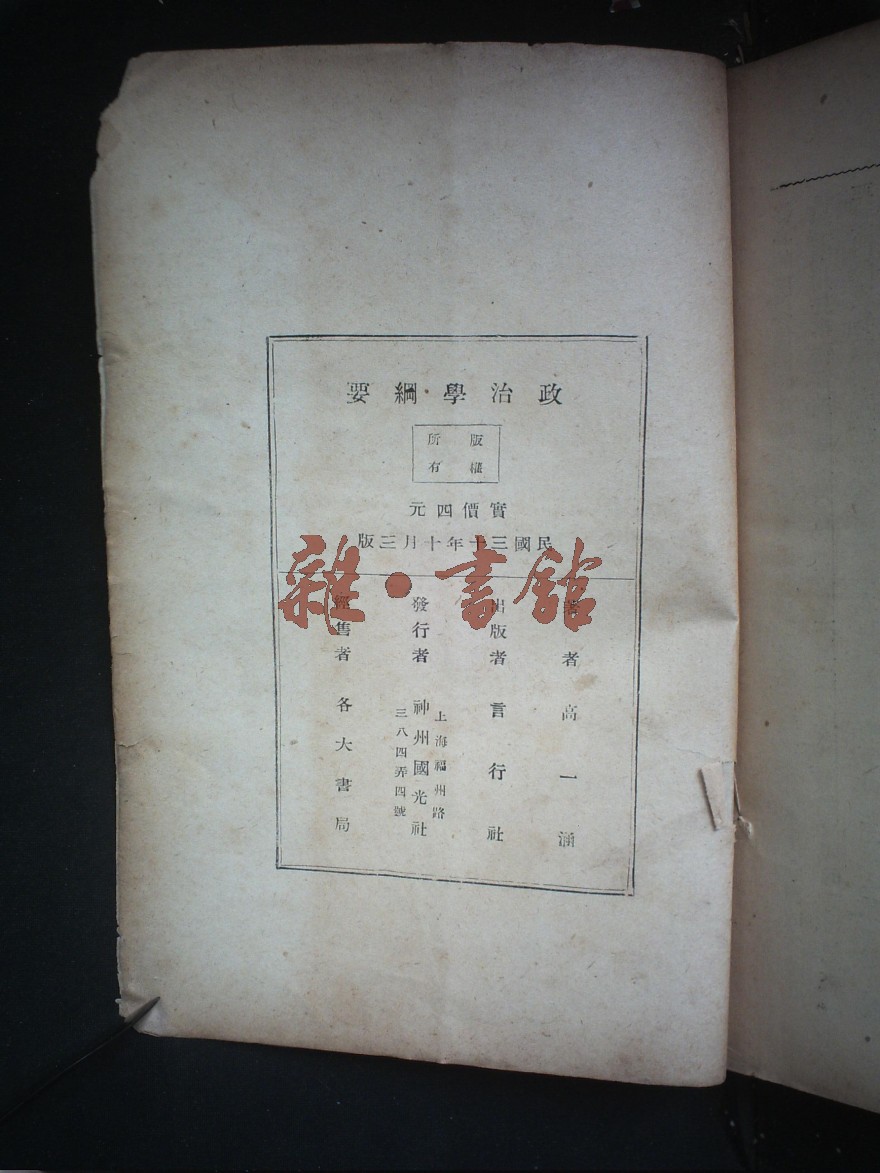 政治學綱要
版權
所有
實價四元
民國三十年十月三版
著者 高一涵
出版者 言行社
發行者 神州國光社
上海福州路
三八四弄四號
經售者 各大書局
雜·書館